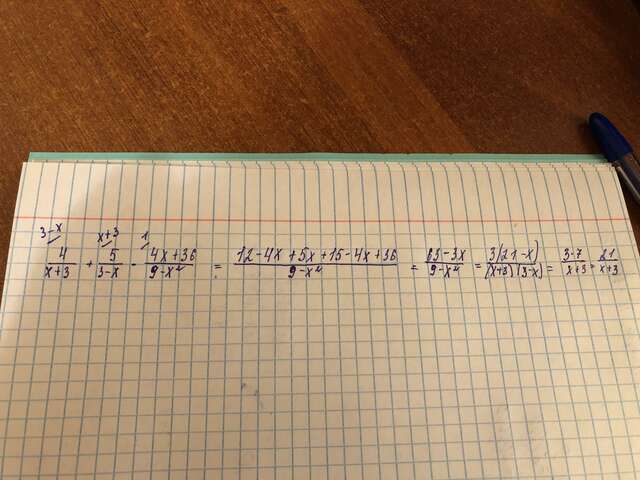 3-x x+3 1
4/(x+3) + 5/(3-x) - (4x+36)/(9-x²) = (12-4x+5x+15-4x+36)/(9-x²) = (63-3x)/(9-x²) = 3(21-x)/((x+3)(3-x)) = (3-7)/(x+3) + 21/(x+3)